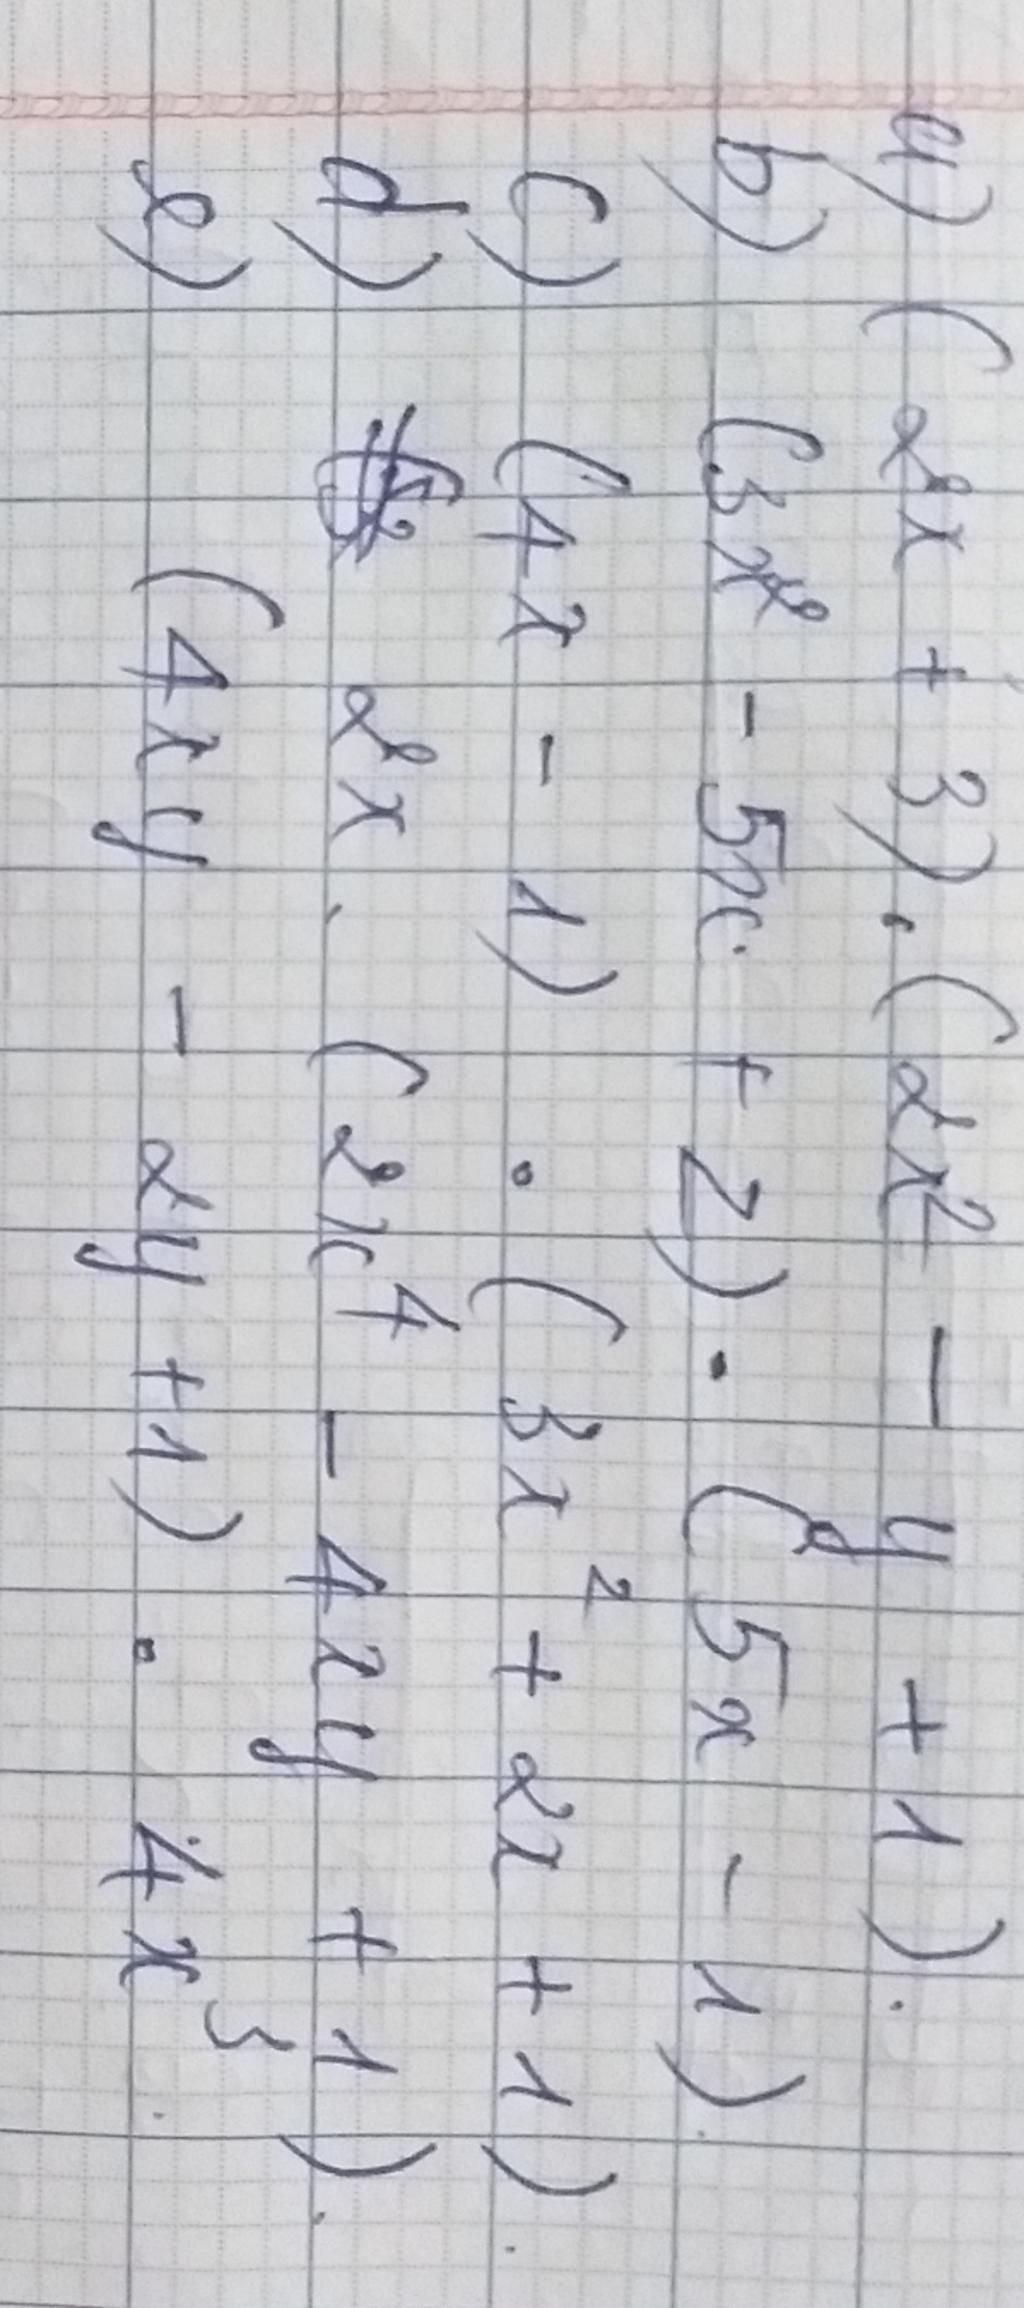 a) (2x + 3) . (2x² - y + 1).
b) (3x² - 5x + 2) . (5x - 1)
c) (4x - 1) . (3x² + 2x + 1).
d) 2x . (2x⁴ - 4xy + 1).
e) (4xy - 2y + 1) . 4x³